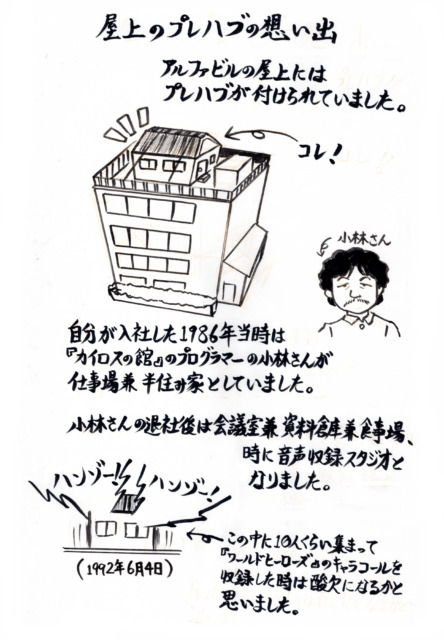 屋上のプレハブの想い出
アルファビルの屋上には
プレハブが付けられていました。
コレ!
小林さん
自分が入社した1986年当時は
『カイロスの館』のプログラマーの小林さんが
仕事場兼半住み家としていました。
小林さんの退社後は会議室兼資料倉庫兼食事場、
時に音声収録スタジオと
なりました。
ハンゾー!!
ハンゾー!
(1992年6月4日)
この中に10人くらい集まって
『ワールドヒーローズ』のキャラコールを
収録した時は酸欠になるかと
思いました。